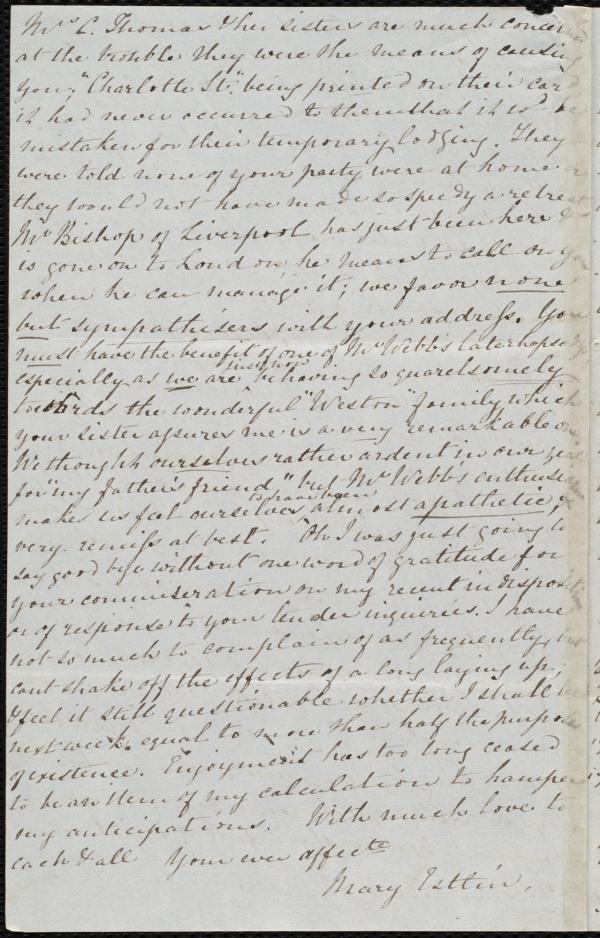 Mrs. C. Thomas & her sisters are much concerned
at the trouble they were the means of causing
you; "Charlotte St." being printed on their card
it had never occurred to them that it wd. be
mistaken for their temporary lodging. They
were told none of your party were at home or
they would not have made so speedy a retreat
Mr. Bishop of Liverpool has just been here &
is gone on to London, he means to call on you
when he can manage it; we favor none
but sympathisers with your address. You
must have the benefit of one of Mr. Webb's later
especially as we are just now behaving so quarelsomely
towards the wonderful "Weston" family which
your sister assures me is a very remarkable one.
We thought ourselves rather ardent in our zeal
for "my father's friend" but Mr. Webb's enthusiasm
makes us feel ourselves to have been almost apathetic, &
very remiss at best. Oh I was just going to
say good bye without one word of gratitude for
your commiseration on my recent indisposition
or of response to your tender inquiries. I have
not so much to complain of as frequently, but
cant shake off the effects of a long laying up;
& feel it still questionable whether I shall be
next week equal to more than half the purposes
of existence. Enjoyment has too long ceased
to be an item of my calculation to hamper
my anticipations. With much love to
each & all Your ever affecte
Mary Estlin.